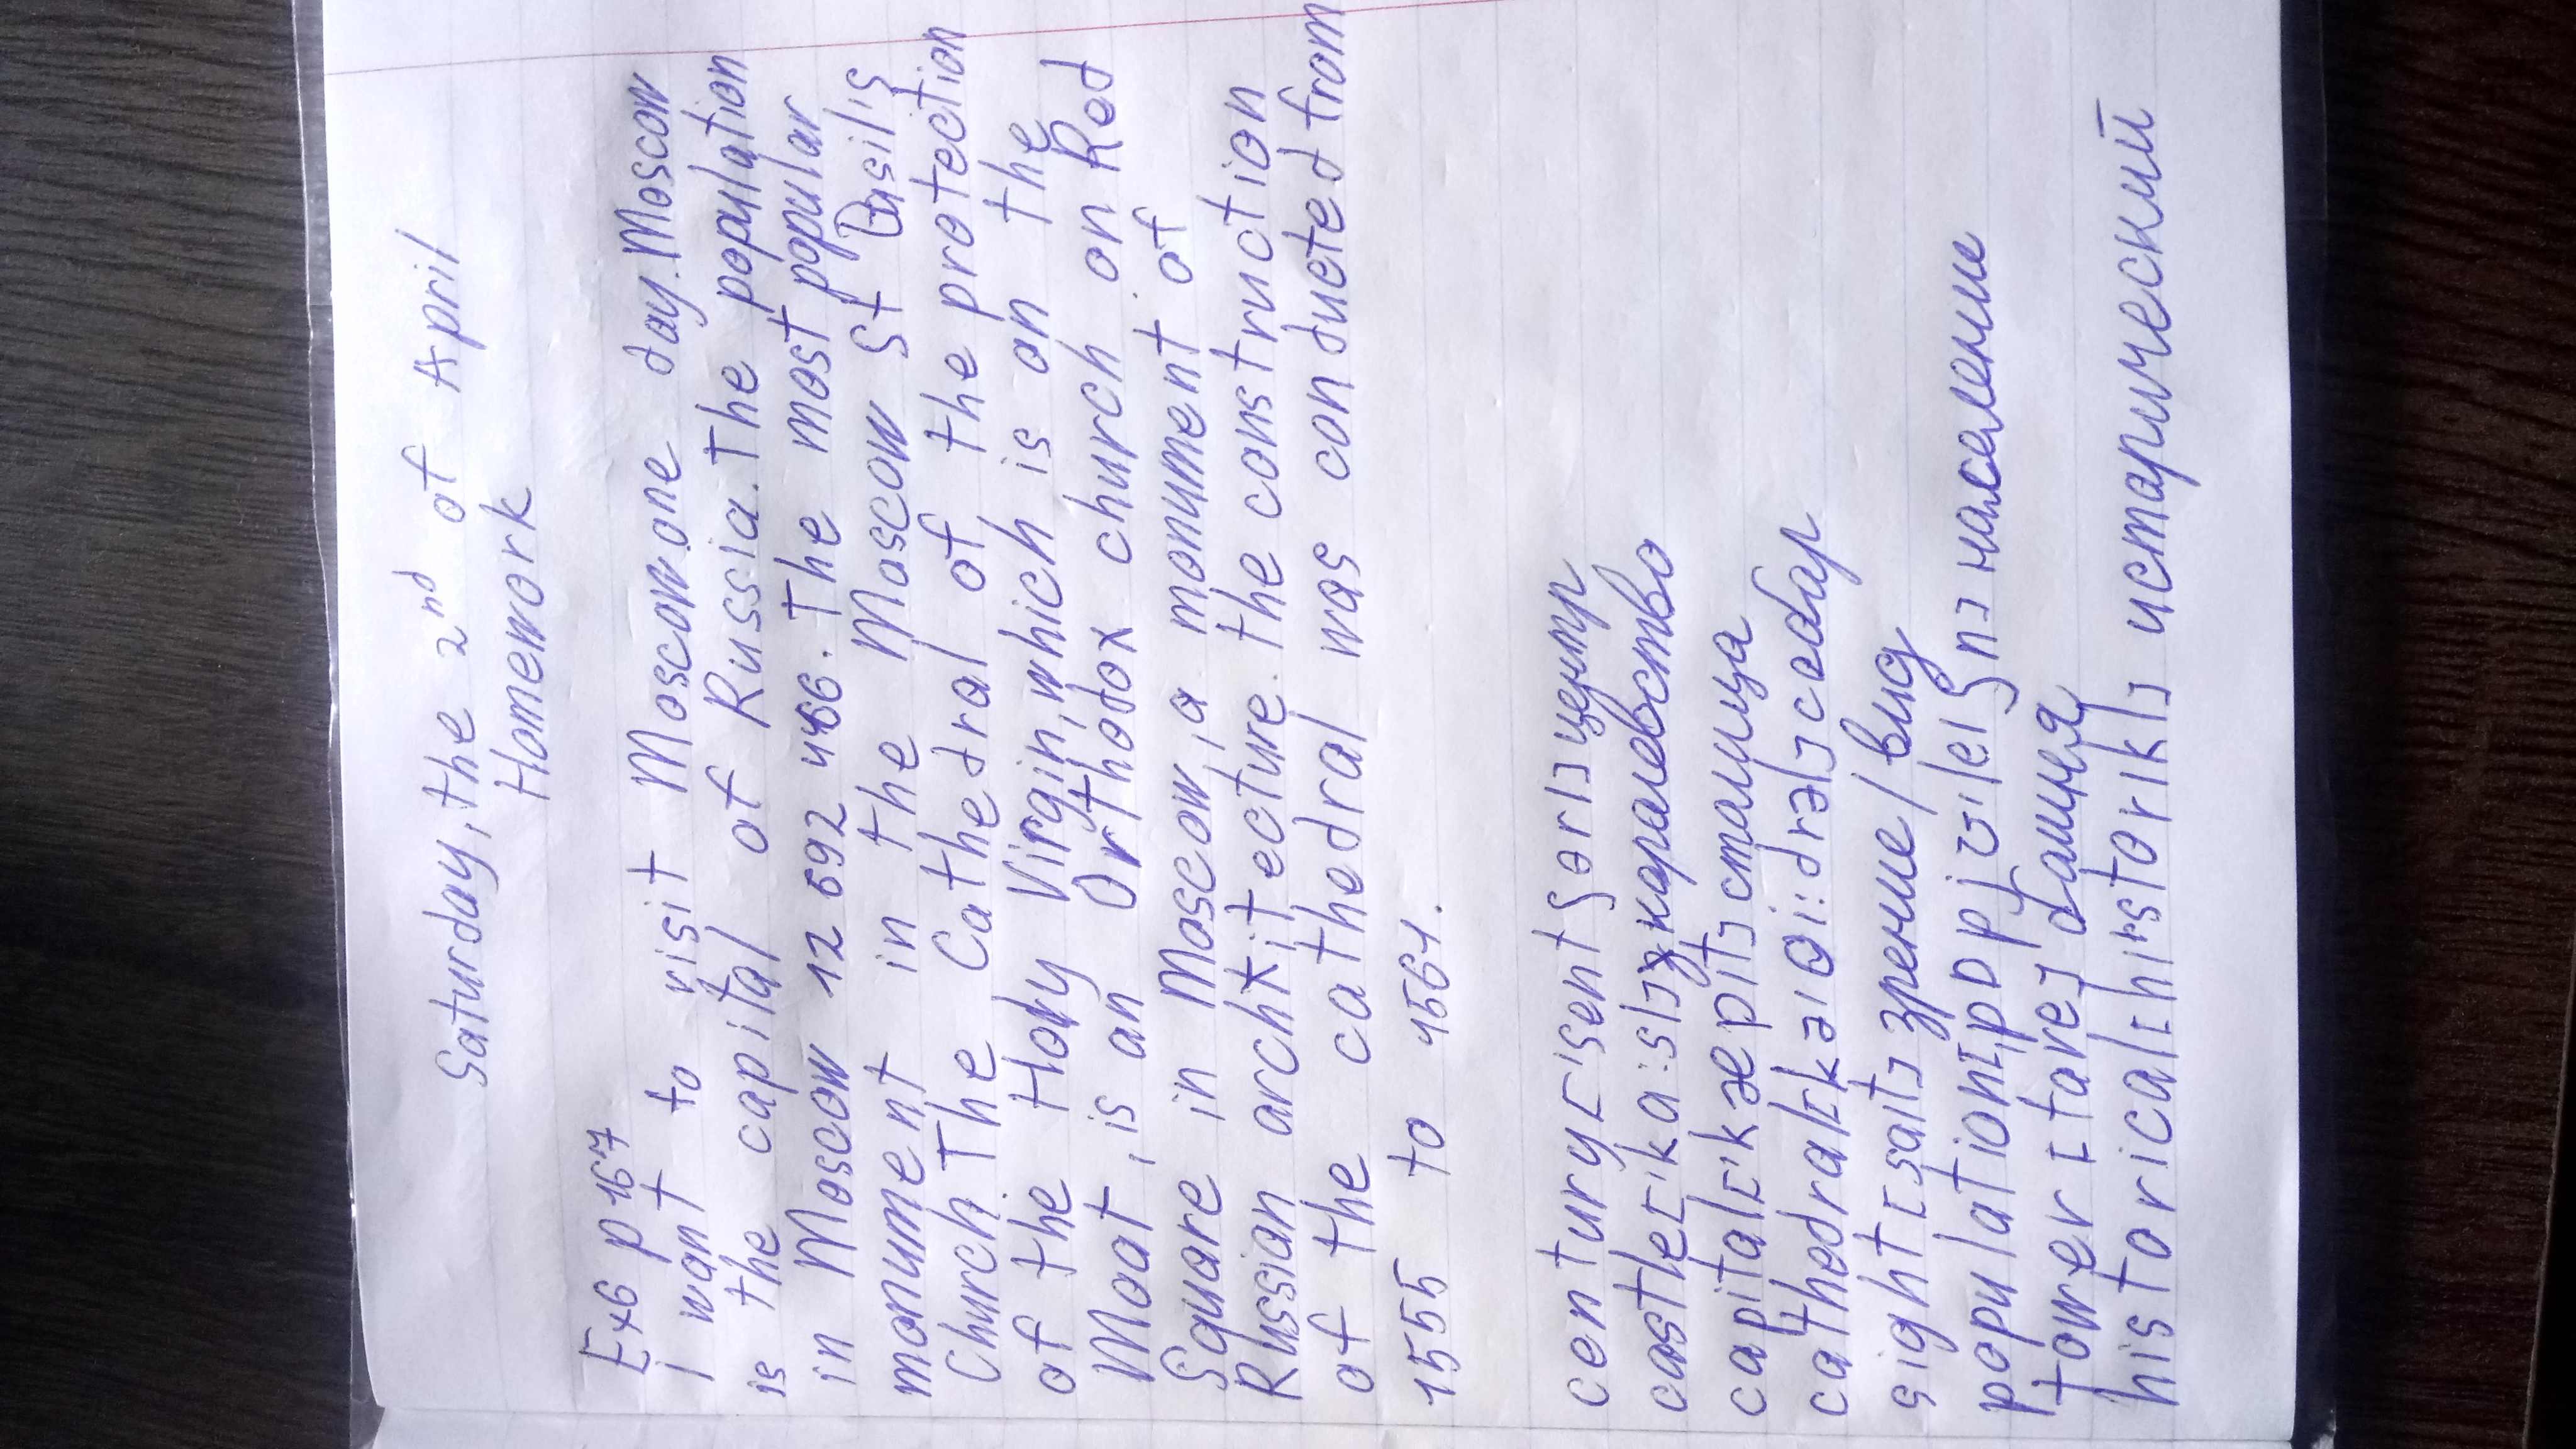 Saturday, the 2nd of April
Homework
Ex6 p 167
I want to visit Moscow one day. Moscow
is the capital of Russia. The population
in Moscow 12 692 466. The most popular
monument in the Moscow St Basil's
Church The Cathedral of the protection
of the Holy Virgin, which is on the
Moat, is an Orthodox church on Red
Square in Moscow, a monument of
Russian architecture. The construction
of the cathedral was conducted from
1555 to 1561.
century ['sentʃərɪ] центр
castle ['ka:sl] королевство
capital ['kæpɪt] столица
cathedral [kəɪθi:drəl] собор
sight [saɪt] зрение/вид
population [ˌpɒpjʊ'leɪʃn] население
tower [taʊe] башня
historical [hɪ'stɒrɪkl] исторический